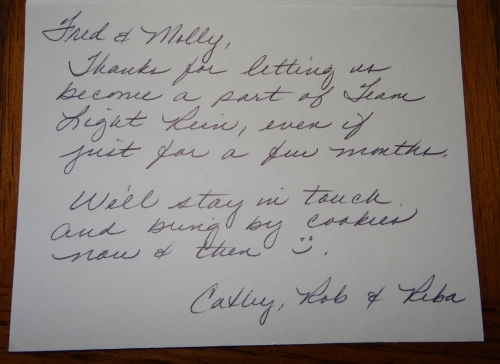 Fred & Molly,
Thanks for letting us
become a part of Team
Light Rein, even if
just for a few months.
We'll stay in touch
and bring by cookies
now & then :).
Cathy, Rob & Reba